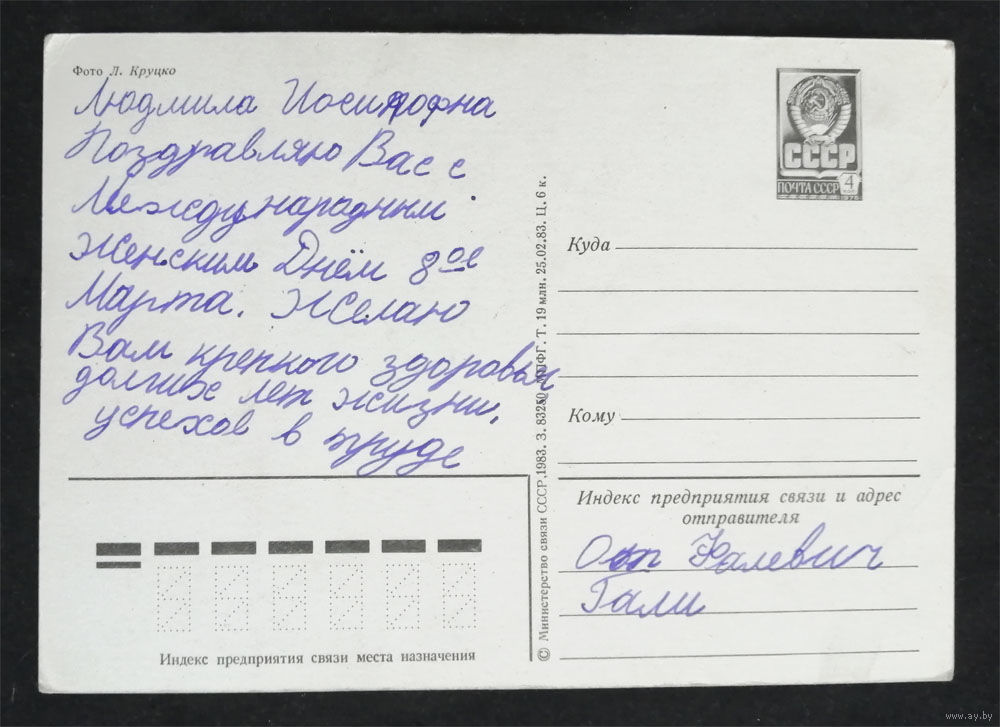 Фото Л. Круцко
Людмила Иосифофна
Поздравляю Вас с
Междунарадным
Женским Днём 8ое
Марта. Желаю
Вам крепкого здоровья
долгих лет жизни,
успехов в труде
СССР
ПОЧТА СССР 4
Куда
Кому
© Министерство связи СССР, 1983. З. 83250. МПФГ. Т. 19 млн. 25.02.83. Ц. 6 к.
Индекс предприятия связи и адрес
отправителя
От Халевич
Гали
Индекс предприятия связи места назначения
www.ay.by